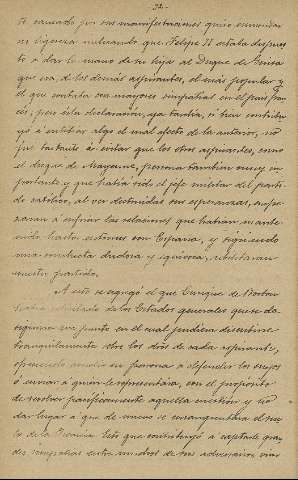 32.
to causado por sus manifestaciones quiso enmendar
su ligereza indicando que Felipe II estaba dispues
to á dar la mano de su hija al Duque de Guisa
que era, de los demás aspirantes, el más popular y
el que contaba con mayores simpatías en el país fran
cés; pero esta declaración, aja tardía, si bien contribu
yó á entibiar algo el mal efecto de la anterior, no
fue bastante á evitar que los otros aspirantes, como
el duque de Mayenne, persona también muy im
portante y que había sido el jefe militar del parti-
do católico, al ver destruidas sus esperanzas, empe-
zaran á enfriar las relaciones que habían mante-
nido hasta entonces con España, y siguiendo
una conducta dudosa y equívoca, debilitaran
nuestro partido.
A esto se agregó el que Enrique de Borbon
había solicitado de los Estados generales que se de
signara un punto en el cual pudieran discutirse
tranquilamente los de cada aspirante,
ofreciendo acudir en persona á defender los suyos
ó enviar á quien le representara, con el propósito
de resolver pacíficamente aquella cuestión y no
dar lugar á que de nuevo se ensangrentara el sue
lo de la Francia. Esto que contribuyó á captarle gran
des simpatías entre muchos de sus adversarios vino